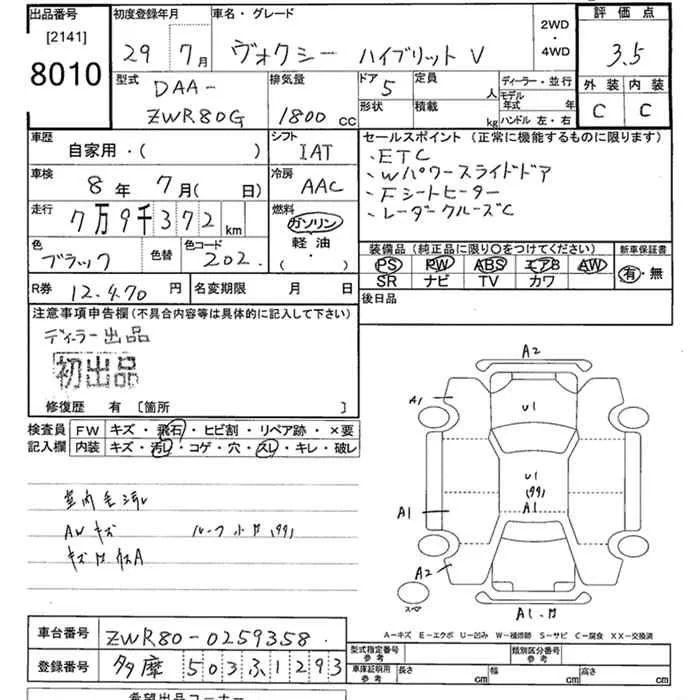 出品番号 初度登録年月 車名・グレード 2WD・4WD 評価点
[2141]
8010 29年 7月 ヴォクシー ハイブリットV 3.5
型式 DAA- 排気量 ドア 5 定員 人 ディーラー・並行 外装 内装
ZWR80G 1800 cc 形状 積載 kg モデル年式 年 C C
ハンドル 左・右
車歴 シフト セールスポイント (正常に機能するものに限ります)
自家用・( ) IAT 、ETC
車検 冷房 、Wパワースライドドア
8年 7月( 日) AAC 、Fシートヒーター
走行 燃料 、レーダークルーズC
7万9千372 km ガソリン
軽油
( ・ )
色 色替 色コード 装備品 (純正品に限り○をつけてください) 新車保証書
ブラック 202 PS PW ABS エアB AW 有・無
SR ナビ TV カワ
R券 12,470 円 名変期限 月 日 後日品
注意事項申告欄 (不具合内容等は具体的に記入して下さい)
ディーラー出品
初出品
修復歴 有 [箇所 ]
検査員 FW キズ・飛石・ヒビ割・リペア跡・×要
記入欄 内装 キズ・汚レ・コゲ・穴・スレ・キレ・破レ
A2
A1
U1
U1
(99)
A1
A1
A2
スペア
A1
室内
AW キズ
A-キズ E-エクボ U-凹み W-補修跡 S-サビ C-腐食 XX-交換済
車台番号 ZWR80-0259358
登録番号 多摩 503ふ1293
型式指定番号 参考 類別区分番号 参考
車庫証明用 参考 長さ cm 幅 cm 高さ cm
希望出品コーナー